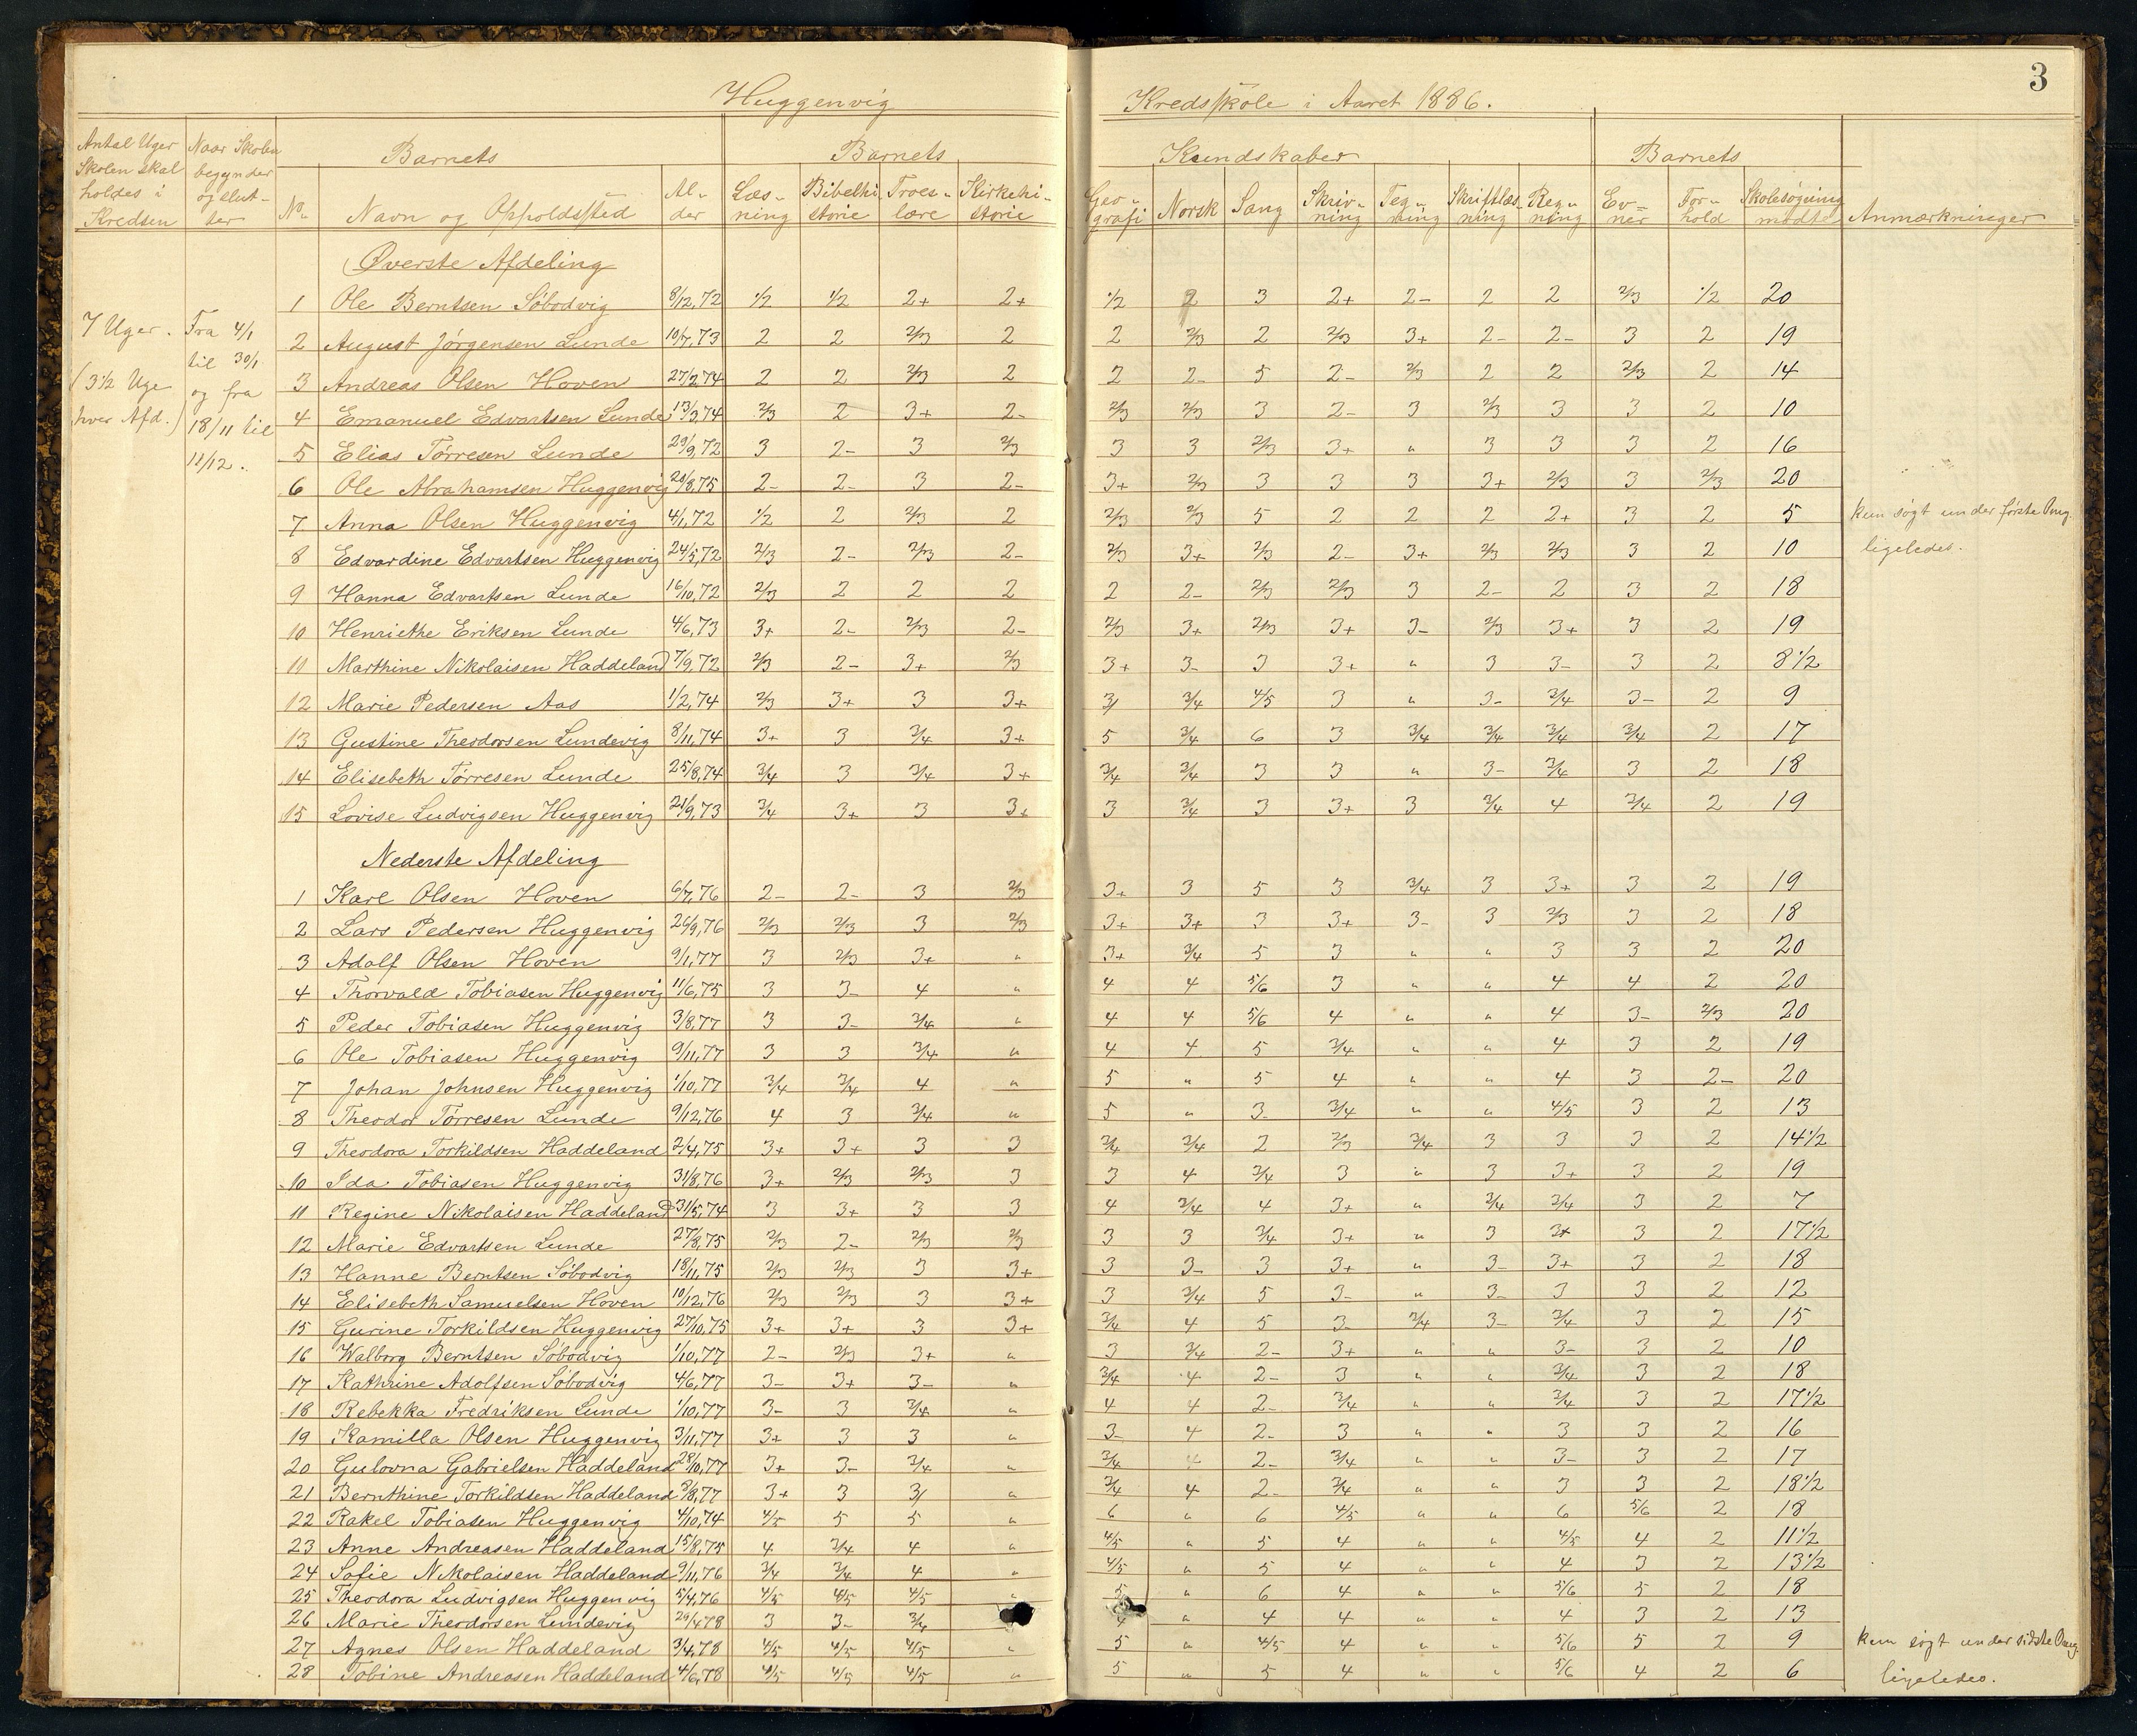 3
Huggenvig Kredsskole i Aaret 1886.
Antal Uger Skolen skal holdes i Kredsen | Naar Skolen begynder og slutter | Barnets | Barnets Kundskaber | Barnets
No. | Navn og Oppoldssted | Alder | Læsning | Bibelhistorie | Troeslære | Kirkehistorie | Geografi | Norsk | Sang | Skrivning | Tegning | Skriftlæsning | Regning | Evner | Forhold | Skolesøgning mødte | Anmærkninger
7 Uger.
(3 1/2 Uge
hver Afd.)
Fra 4/1
til 30/1
og fra
18/11 til
11/12.
Øverste Afdeling
1 Ole Berntsen Søbodvig 8/12,72 1/2 1/2 2+ 2+ 1/2 2 3 2+ 2- 2 2 2/3 1/2 20
2 August Jørgensen Lunde 10/7,73 2 2 2/3 2 2 2/3 2 2/3 3+ 2- 2- 3 2 19
3 Andreas Olsen Hoven 27/2,74 2 2 2/3 2 2 2- 5 2- 2/3 2 2 2/3 2 14
4 Emanuel Edvartsen Lunde 13/3,74 2/3 2 3+ 2- 2/3 2/3 3 2- 3 2/3 3 3 2 10
5 Elias Tørresen Lunde 29/9,72 3 2- 3 2/3 3 3 2/3 3+ " 3 3 3 2 16
6 Ole Abrahamsen Huggenvig 20/8,75 2- 2- 3 2- 3+ 2/3 3 3 3 3+ 2/3 3 2/3 20
7 Anna Olsen Huggenvig 4/1,72 1/2 2 2/3 2 2/3 2/3 5 2 2 2 2+ 3 2 5 kun søgt under første Omg.
8 Edvardine Edvartsen Huggenvig 24/5,72 2/3 2- 2/3 2- 2/3 3+ 2/3 2- 3+ 2/3 2/3 3 2 10 ligeledes.
9 Hanna Edvartsen Lunde 16/10,72 2/3 2 2 2 2 2- 2/3 2/3 3 2- 2 3 2 18
10 Henriethe Eriksen Lunde 4/6,73 3+ 2- 2/3 2- 2/3 3+ 2/3 3+ 3- 2/3 3+ 3 2 19
11 Marthine Nikolaisen Haddeland 7/9,72 2/3 2- 3+ 2/3 3+ 3- 3 3+ " 3 3- 3 2 8 1/2
12 Marie Pedersen Aas 1/2,74 2/3 3+ 3 3+ 3/ 3/4 4/5 3 " 3- 3/4 3- 2 9
13 Gustine Theodorsen Lundevig 8/11,74 3+ 3 3/4 3+ 5 3/4 6 3 3/4 3/4 3/4 3/4 2 17
14 Elisebeth Tørresen Lunde 25/8,74 3/4 3 3/4 3+ 3/4 3/4 3 3 " 3- 3/4 3 2 18
15 Lovise Ludvigsen Huggenvig 21/9,73 3/4 3+ 3 3+ 3 3/4 3 3+ 3 3/4 4 3/4 2 19
Nederste Afdeling
1 Karl Olsen Hoven 6/7,76 2- 2- 3 2/3 3+ 3 5 3 3/4 3 3+ 3 2 19
2 Lars Pedersen Huggenvig 26/9,76 2/3 2/3 3 2/3 3+ 3+ 3 3+ 3- 3 2/3 3 2 18
3 Adolf Olsen Hoven 9/1,77 3 2/3 3+ " 3+ 3/4 5 3 " " 3 3 2 20
4 Thorvald Tobiasen Huggenvig 11/6,75 3 3- 4 " 4 4 5/6 3 " " 4 4 2 20
5 Peder Tobiasen Huggenvig 3/8,77 3 3- 3/4 " 4 4 5/6 4 " " 4 3- 2/3 20
6 Ole Tobiasen Huggenvig 9/11,77 3 3 3/4 " 4 4 5 3/4 " " 4 3 2 19
7 Johan Johnsen Huggenvig 1/10,77 3/4 3/4 4 " 5 " 5 4 " " 4 3 2- 20
8 Theodor Tørresen Lunde 9/12,76 4 3 3/4 " 5 " 3- 3/4 " " 4/5 3 2 13
9 Theodora Torkildsen Haddeland 2/4,75 3+ 3+ 3 3 3/4 3/4 2 2/3 3/4 3 3 3 2 14 1/2
10 Ida Tobiasen Huggenvig 31/8,76 3+ 2/3 2/3 3 3 4 3/4 3 " 3 3+ 3 2 19
11 Regine Nikolaisen Haddeland 31/5,74 3 3+ 3 3 4 3/4 4 3+ " 3/4 3/4 3 2 7
12 Marie Edvartsen Lunde 27/8,75 2/3 2- 2/3 2/3 3 3 3/4 3+ " 3 3+ 3 2 17 1/2
13 Hanne Berntsen Søbodvig 18/11,75 2/3 2/3 3 3+ 3 3- 3 3+ " 3- 3+ 3 2 18
14 Elisebeth Samuelsen Hoven 10/12,76 2/3 2/3 3 3+ 3 3/4 5 3- " 3- 3 3 2 12
15 Gurine Torkildsen Huggenvig 27/10,75 3+ 3+ 3 3+ 3/4 4 5 3- 3/4 3- 3/4 3 2 15
16 Walborg Berntsen Søbodvig 1/10,77 2- 2/3 3+ " 3 3/4 2- 3+ " " 3- 3 2 10
17 Kathrine Adolfsen Søbodvig 4/6,77 3- 3+ 3- " 3/4 4 2- 3 " " 3/4 3 2 18
18 Rebekka Fredriksen Lunde 1/10,77 3- 3 3/4 " 4 4 2- 3/4 " " 3/4 3 2 17 1/2
19 Kamilla Olsen Huggenvig 3/11,77 3+ 3 3 " 3- 4 2- 3 " " 3 3 2 16
20 Gulovna Gabrielsen Haddeland 28/10,77 3+ 3- 3/4 " 3/4 4 2- 3/4 " " 3- 3 2 17
21 Bernthine Torkildsen Haddeland 8/8,77 3+ 3 3/ " 3/4 4 2- 3/4 " " 3 3 2 18 1/2
22 Rakel Tobiasen Huggenvig 4/10,74 4/5 5 5 " 6 " 6 4/5 " " 6 5/6 2 18
23 Anne Andreasen Haddeland 15/8,75 4 3/4 4 " 4/5 " 5 4 " " 4/5 4 2 11 1/2
24 Sofie Nikolaisen Haddeland 9/11,76 3/4 3/4 4 " 4/5 " 5 4 " " 4 3 2 13 1/2
25 Theodora Ludvigsen Huggenvig 5/4,76 4/5 4/5 4/5 " 5 " 6 4 " " 5/6 5 2 18
26 Marie Theodorsen Lundevig 29/4,78 3 3- 3/4 4 " 4 4 " " 4 3 2 13
27 Agnes Olsen Haddeland 3/4,78 4/5 4/5 4/5 " 5 " 4/5 4 " " 5/6 5 2 9 kun søgt under sidste Omg.
28 Tobine Andreasen Haddeland 4/6,78 4/5 4/5 4/5 " 5 " 5 4 " " 5/6 4 2 6 ligeledes.